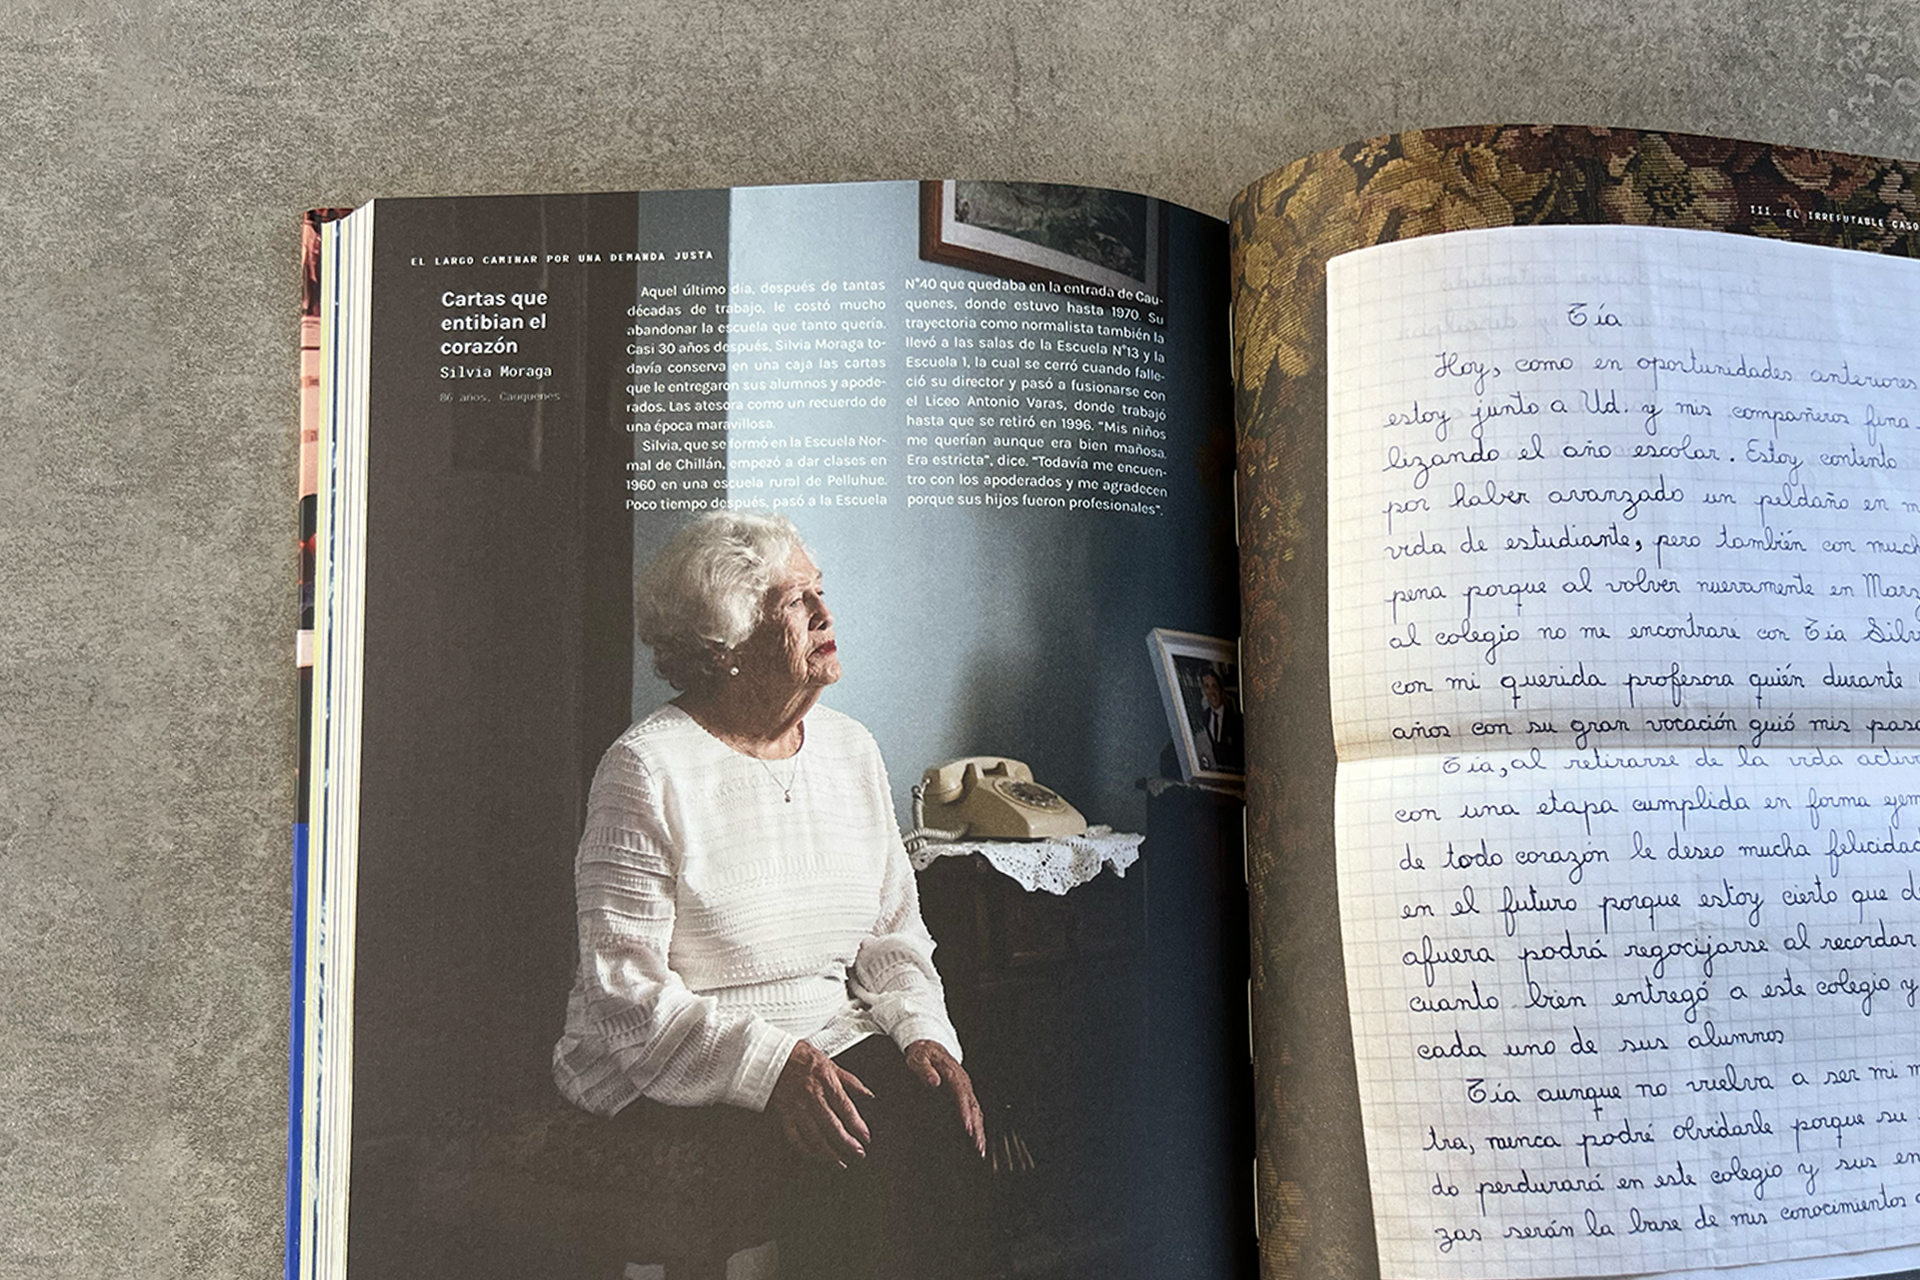 EL LARGO CAMINAR POR UNA DEMANDA JUSTA
Cartas que
entibian el
corazón
Silvia Moraga
86 años, Cauquenes
Aquel último día, después de tantas
décadas de trabajo, le costó mucho
abandonar la escuela que tanto quería.
Casi 30 años después, Silvia Moraga to-
davía conserva en una caja las cartas
que le entregaron sus alumnos y apode-
rados. Las atesora como un recuerdo de
una época maravillosa.
Silvia, que se formó en la Escuela Nor-
mal de Chillán, empezó a dar clases en
1960 en una escuela rural de Pelluhue.
Poco tiempo después, pasó a la Escuela
N°40 que quedaba en la entrada de Cau-
quenes, donde estuvo hasta 1970. Su
trayectoria como normalista también la
llevó a las salas de la Escuela N°13 y la
Escuela 1, la cual se cerró cuando falle-
ció su director y pasó a fusionarse con
el Liceo Antonio Varas, donde trabajó
hasta que se retiró en 1996. "Mis niños
me querían aunque era bien mañosa.
Era estricta", dice. "Todavía me encuen-
tro con los apoderados y me agradecen
porque sus hijos fueron profesionales".
III. EL IRREFUTABLE CASO
Tía
Hoy, como en oportunidades anteriores
estoy junto a Ud. y mis compañeros fina-
lizando el año escolar. Estoy contento
por haber avanzado un peldaño en m
vida de estudiante, pero también con much
pena porque al volver nuevamente en Marz
al colegio no me encontraré con Tía Silv
con mi querida profesora quién durante
años con su gran vocación guió mis paso
Tía, al retirarse de la vida activ
con una etapa cumplida en forma ejem
de todo corazón le deseo mucha felicidad
en el futuro porque estoy cierto que d
afuera podrá regocijarse al recordar
cuanto bien entregó a este colegio y
cada uno de sus alumnos
Tía aunque no vuelva a ser mi m
tra, nunca podré olvidarle porque su
do perdurará en este colegio y sus en
zas serán la base de mis conocimientos